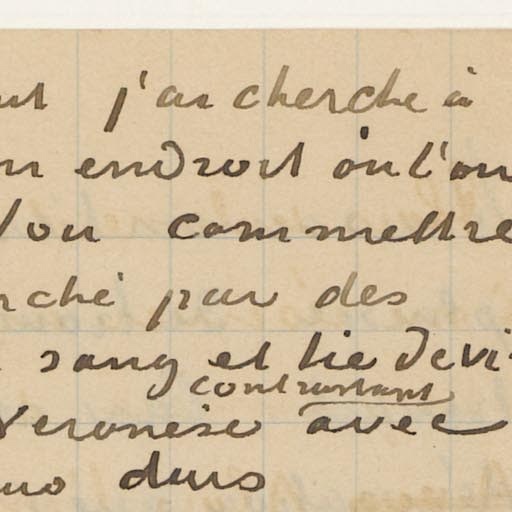 j'ai cherché à
endroit où l'on
fou commettre
ché par des
sang et lie de vi
contrastant
Veronèse avec
durs